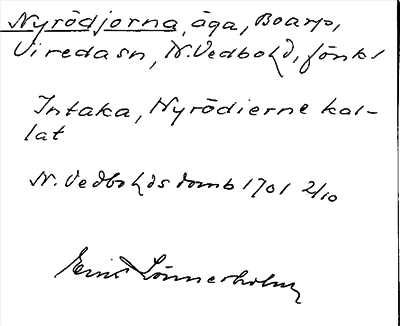 Nyrödjorna, äga, Boarp,
Viredasn, N. Vedbohd, Jönk l
Intaka, Nyrödierne kal-
lat
N. Vedbohds domb 1701 2/10
Einar Lönnerholm